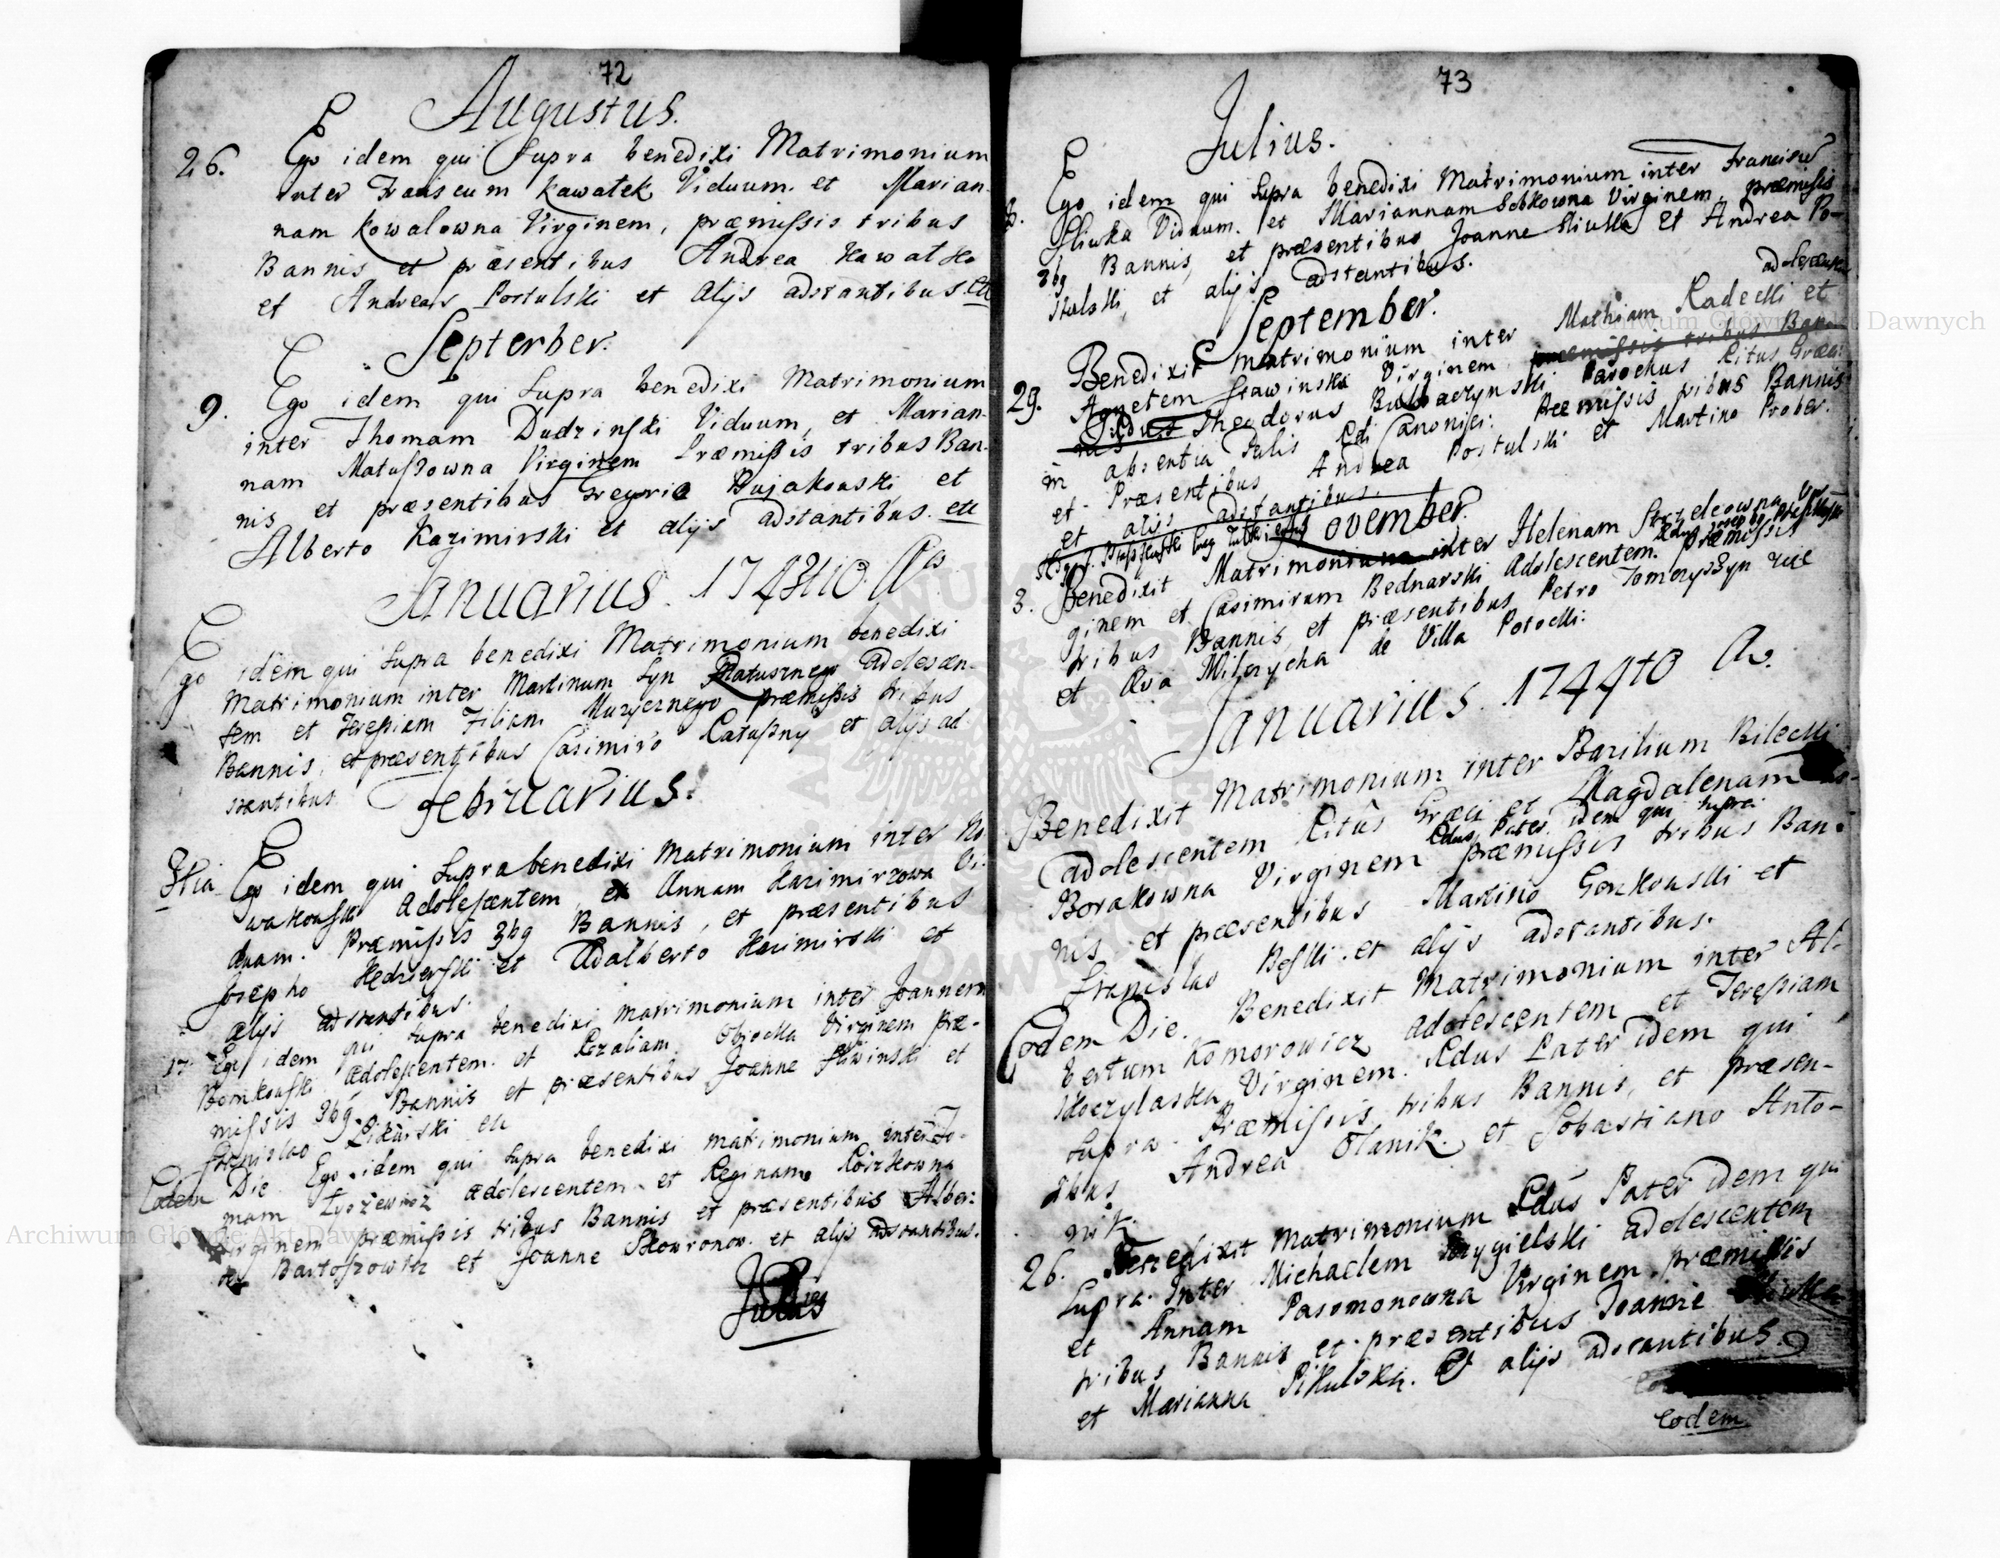 72
Augustus.
26. Ego idem qui Supra benedixi Matrimonium
inter Franiscum Kawatek Viduum. et Marian-
nam Kowalowna Virginem, præmissis tribus
Bannis et præsentibus Andrea Kawatko
et Andreas Postulski et alijs adstantibus. etc
Septerber.
9. Ego idem qui Supra benedixi Matrimonium
inter Thomam Dudzinski Viduum, et Marian-
nam Matuszowna Virginem Præmissis tribus Ban-
nis et præsentibus Gregorio Bujakouski et
Alberto Kazimirski et alijs adstantibus. etc
Januarius. 1743tio Ao
Ego idem qui Supra benedixi Matrimonium benedixi
Matrimonium inter Martinum Syn adolescen-
tem et Teresiam Filiam Muzycznego præmissis tribus
Bannis, et præsentibus Casimiro et alijs ad
stantibus
Februarius.
3tia Ego idem qui Supra benedixi Matrimonium inter No-
wakouski Adolescentem, et Annam Kazimirzowa Vi-
duam. Præmissis 3bg Bannis, et præsentibus
Josepho et Adalberto Kazimirski et
alijs adstantibus.
17. Ego idem qui Supra benedixi matrimonium inter Joannem
adolescentem. et Rozaliam Virginem præ-
missis 3bg. Bannis et præsentibus Joanne Sliwinski et
Stanislao etc
Eodem Die Ego idem qui Supra benedixi matrimonium inter To-
mam adolescentem et Reginam
Virginem præmissis tribus Bannis et præsentibus Alber:
to Bartoszowicz et Joanne Skowronow. et alijs adstantibus.
73
Julius.
Ego idem qui Supra benedixi Matrimonium inter Francisci
Sliwka Viduum. et Mariannam Sobkowna Virginem, præmissis
3bg Bannis, et præsentibus Joanne Sliwka et Andrea Po-
stulski, et alijs adstantibus.
September.
adolescentem
29. Benedixit Matrimonium inter Mathiam Radecki et
Agnetem Slawinska Virginem præmissis tribus Ban-
Theodorus Parochus Ritus Græci
in absentia Canonici: Præmissis tribus Bannis
et Præsentibus Andrea Postulski et Martino Prober.
et alijs adstantibus.
November.
3. Benedixit Matrimonium inter Helenam Strzelcowna Vir-
ginem et Casimirum Bednarski Adolescentem. præmissis
tribus Bannis, et præsentibus Petro Tomczyszyn
et Eva Milczycha de Villa Potocki:
Januarius. 1744to Ao.
Benedixit Matrimonium inter Bazilium Bilecki
adolescentem Ritûs Græci et Magdalenam
Rdus Pater idem qui supra.
Borakowna Virginem præmissis tribus Ban-
nis et præsentibus Marino Gonkouski et
Stanislao Beski. et alijs adstantibus.
Eodem Die. Benedixit Matrimonium inter Al-
bertum Komorowicz adolescentem et Teresiam
Virginem. Rdus Pater idem qui
Supra. Præmissis tribus Bannis, et præsen-
tibus Andrea Olanik. et Sobastiano Anto-
nik.
26. Benedixit Matrimonium Rdus Pater idem qui
Supra. Inter Michaelem adolescentem
et Annam Pasomonowna Virginem præmissis
tribus Bannis et præsentibus Joanne Sliwka
et Marianna Pikulska. et alijs adstantibus.
Eodem
Archiwum Główne Akt Dawnych
Archiwum Główne Akt Dawnych